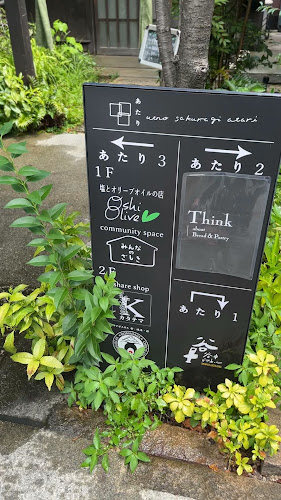 あたり
ueno sakuragi atari
あたり 3
1F
塩とオリーブオイルの店
Oshi Olive
community space
みんなのざしき
2F
share shop
K
カタチヲ
あたり 2
Think
about
Bread & Pastry
あたり 1
谷中